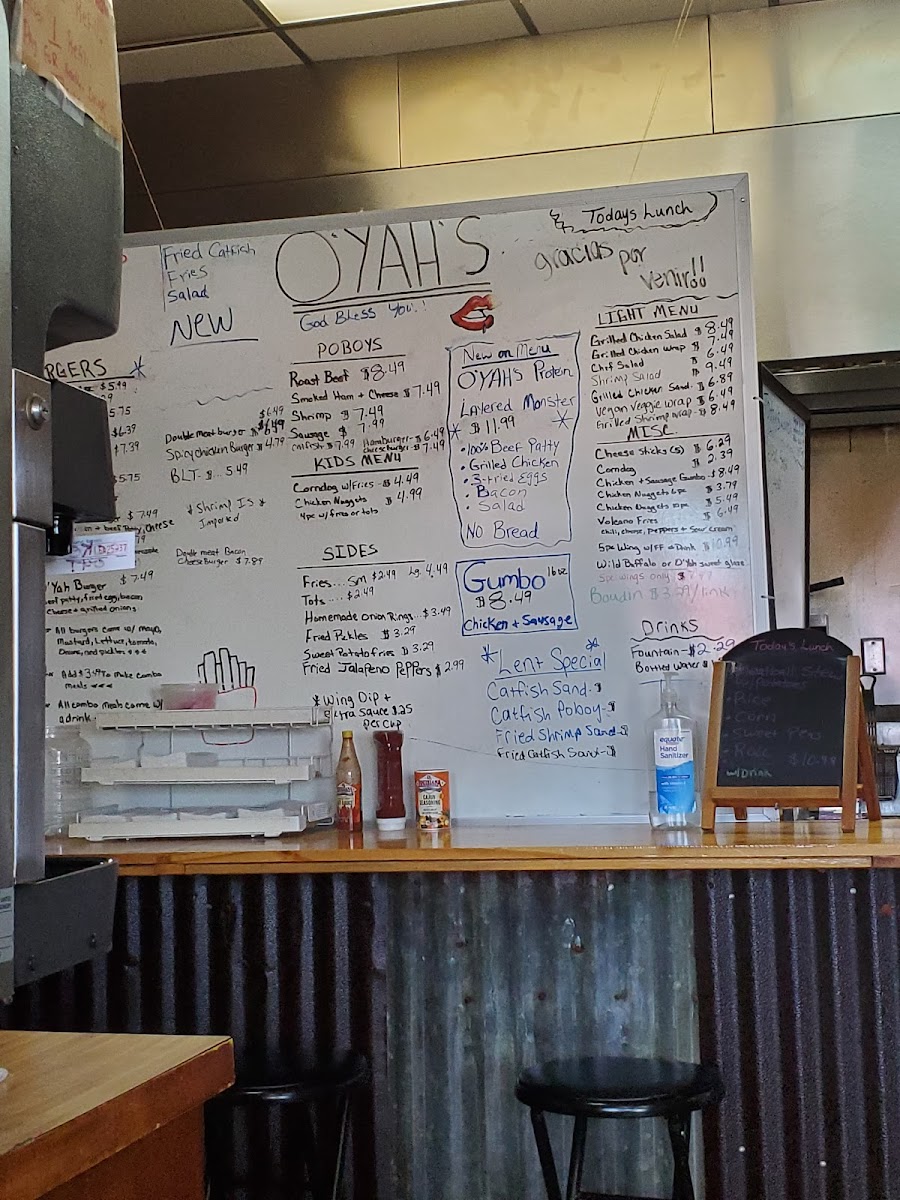 Fried Catfish
Fries
Salad
NEW
O'YAH'S
God Bless You!!
Todays Lunch
gracias por
venir!!
RGERS
$5.49
5.75
$6.39
$7.39
$5.75
$7.49
$6.49
Double meat burger
Spicy chicken Burger $4.79
BLT- $... 5.49
* Shrimp Is *
Imported
Double meat Bacon
Cheese Burger $7.89
O'Yah Burger $7.49
beef patty, fried egg, bacon
cheese + grilled onions
All burgers come w/ mayo,
Mustard, Lettuce, tomato,
Onions, and pickles
Add $3.49 To make combo
meals
All combo meals come w/
a drink
POBOYS
Roast Beef $8.49
Smoked Ham + Cheese $7.49
Shrimp $7.49
Sausage $7.99
Catfish $7.99
Hamburger - 6.49
cheese burger - 7.49
KIDS MENU
Corndog w/Fries - $4.49
Chicken Nuggets $4.99
4pc w/ fries or tots
SIDES
Fries.... Sm $2.49 Lg. 4.49
Tots .... $2.49
Homemade onion Rings.. $3.49
Fried Pickles $3.29
Sweet Potato fries $3.29
Fried Jalapeno Peppers $2.99
* Wing Dip +
Extra Sauce $.25
Per cup
New on Menu
O'YAH'S Protein
Layered Monster
$11.99
• 100% Beef Patty
• Grilled Chicken
• 3-Fried Eggs
• Bacon
• Salad
NO Bread
Gumbo 16oz
$8.49
Chicken + Sausage
Lent Special
Catfish Sand. $
Catfish Poboy. $
Fried Shrimp Sand-$
Fried Catfish Sand-$
LIGHT MENU
Grilled Chicken Salad $8.49
Grilled Chicken Wrap $7.49
Chef Salad $6.49
Shrimp Salad 9.49
Grilled Chicken Sand. $6.89
Vegan Veggie Wrap $6.49
Grilled Shrimp Wrap - $8.49
MISC.
Cheese Sticks (5) $6.29
Corndog $2.39
Chicken + Sausage Gumbo $8.49
Chicken Nuggets 6pc $3.79
Chicken Nuggets 10pc $5.49
Volcano Fries $6.49
chili, cheese, peppers + Sour Cream
5pc Wing w/FF + Drink $10.99
Wild Buffalo or O'Yah sweet glaze
5pc wings only $
Boudin $3.29/link
DRINKS
Fountain - $2.29
Bottled Water $
LOUISIANA
CAJUN
SEASONING
equate
Hand
Sanitizer
Today's Lunch
• Rice
• Corn
• Sweet Peas
• Roll
$10.99
w/Drink